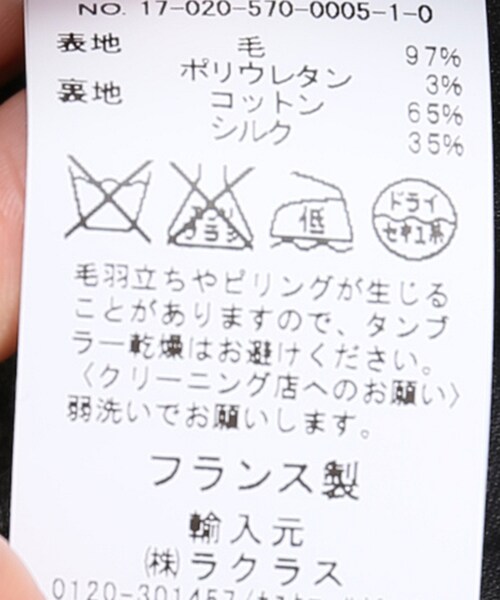 NO. 17-020-570-0005-1-0
表地 毛 97%
ポリウレタン 3%
裏地 コットン 65%
シルク 35%
エンソ
サラシ
低
ドライ
セキユ系
毛羽立ちやピリングが生じる
ことがありますので、タンブ
ラー乾燥はお避けください。
〈クリーニング店へのお願い〉
弱洗いでお願いします。
フランス製
輸入元
㈱ラクラス
0120-301457